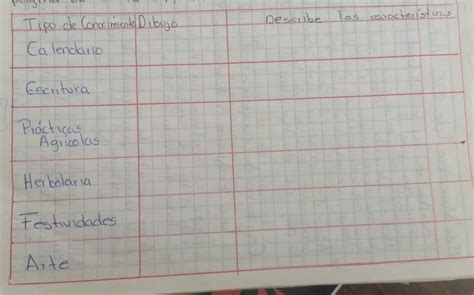 Tipo de Conocimiento Dibujo Describe las características
Calendario
Escritura
Prácticas
Agrícolas
Herbolaria
Festividades
Arte